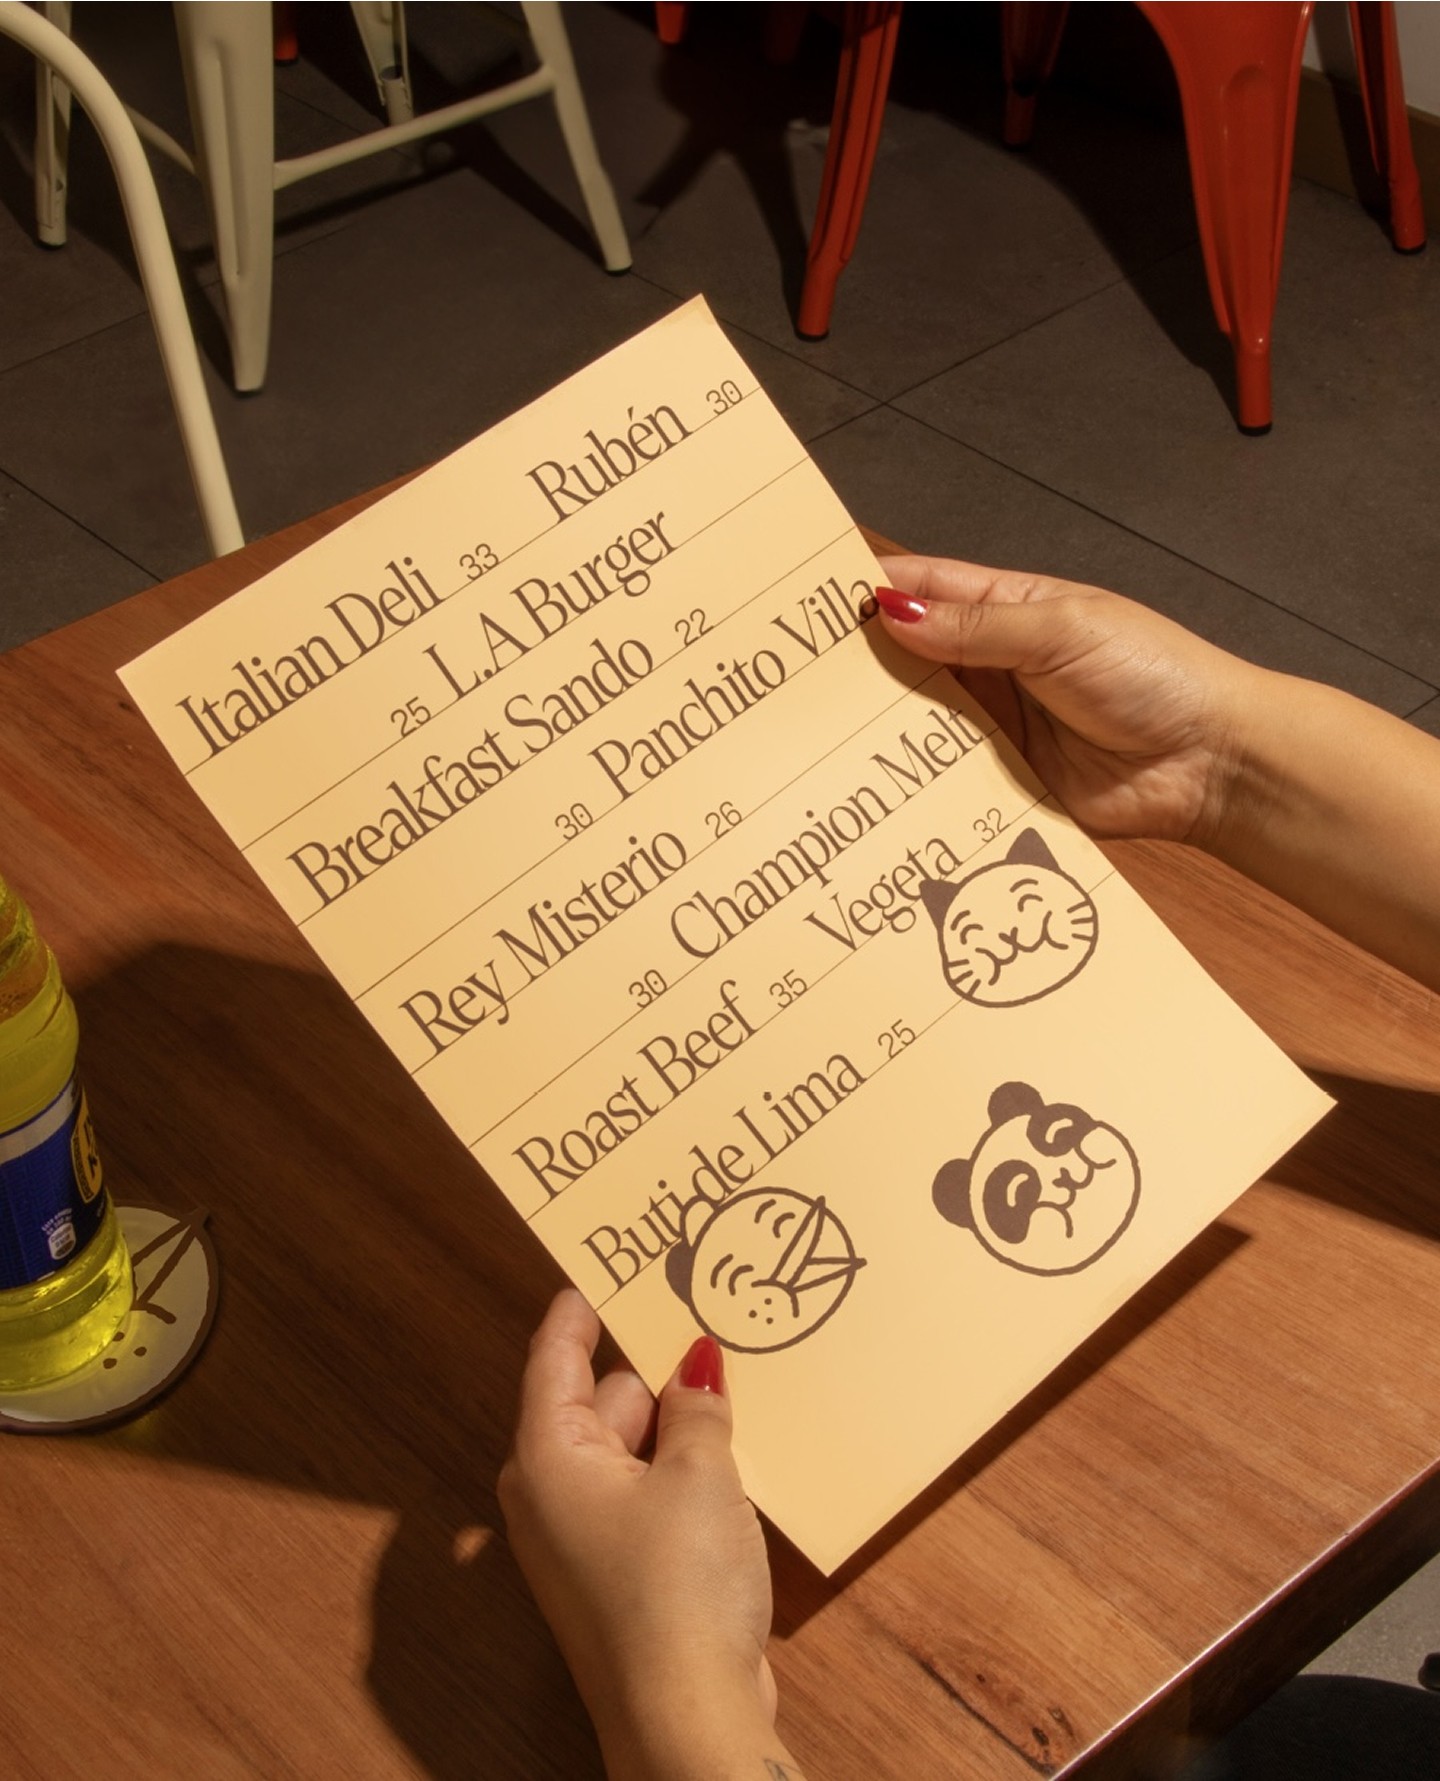 Italian Deli 33 Rubén 30
25 L.A Burger
Breakfast Sando 22
30 Panchito Villa
Rey Misterio 26
30 Champion Melt
Roast Beef 35 Vegeta 32
Buti-de Lima 25